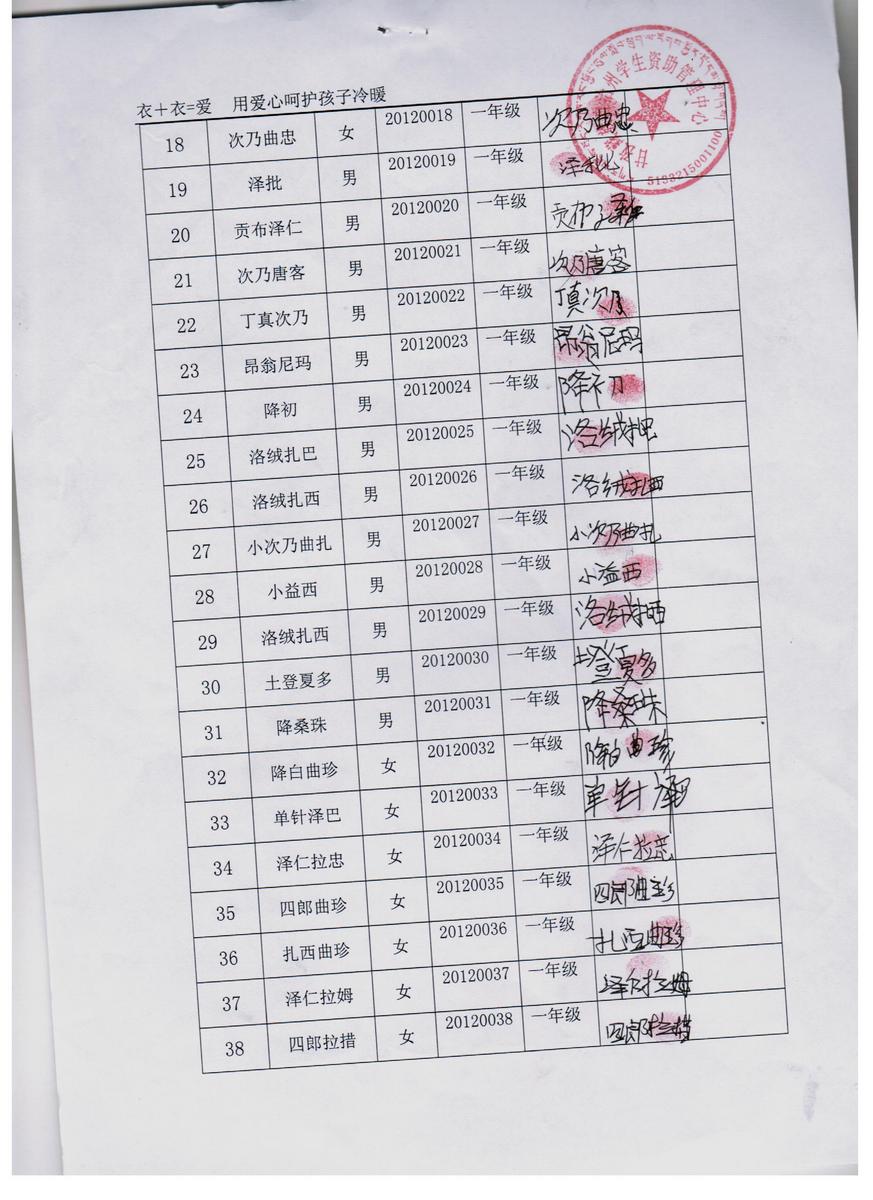 衣＋衣=爱 用爱心呵护孩子冷暖
18 次乃曲忠 女 20120018 一年级 次乃曲忠
19 泽批 男 20120019 一年级 泽批
20 贡布泽仁 男 20120020 一年级 贡布泽仁
21 次乃唐客 男 20120021 一年级 次乃唐客
22 丁真次乃 男 20120022 一年级 丁真次乃
23 昂翁尼玛 男 20120023 一年级 昂翁尼玛
24 降初 男 20120024 一年级 降初
25 洛绒扎巴 男 20120025 一年级 洛绒扎巴
26 洛绒扎西 男 20120026 一年级 洛绒扎西
27 小次乃曲扎 男 20120027 一年级 小次乃曲扎
28 小益西 男 20120028 一年级 小益西
29 洛绒扎西 男 20120029 一年级 洛绒扎西
30 土登夏多 男 20120030 一年级 土登夏多
31 降桑珠 男 20120031 一年级 降桑珠
32 降白曲珍 女 20120032 一年级 降白曲珍
33 单针泽巴 女 20120033 一年级 单针泽巴
34 泽仁拉忠 女 20120034 一年级 泽仁拉忠
35 四郎曲珍 女 20120035 一年级 四郎曲珍
36 扎西曲珍 女 20120036 一年级 扎西曲珍
37 泽仁拉姆 女 20120037 一年级 泽仁拉姆
38 四郎拉措 女 20120038 一年级 四郎拉措
州学生资助管理中心
5133215001100